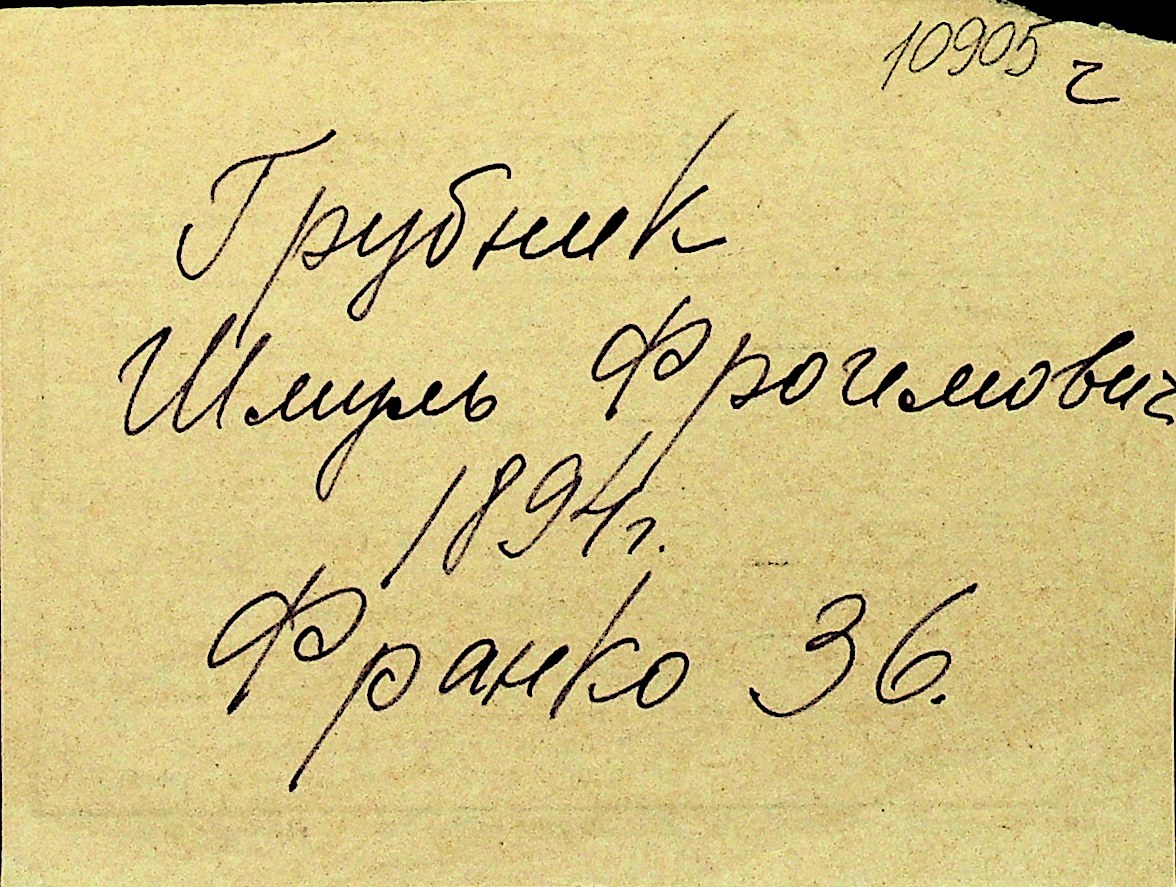 10905 г
Трубник
Шмуль Фроимович
1894 г.
Франко 36.